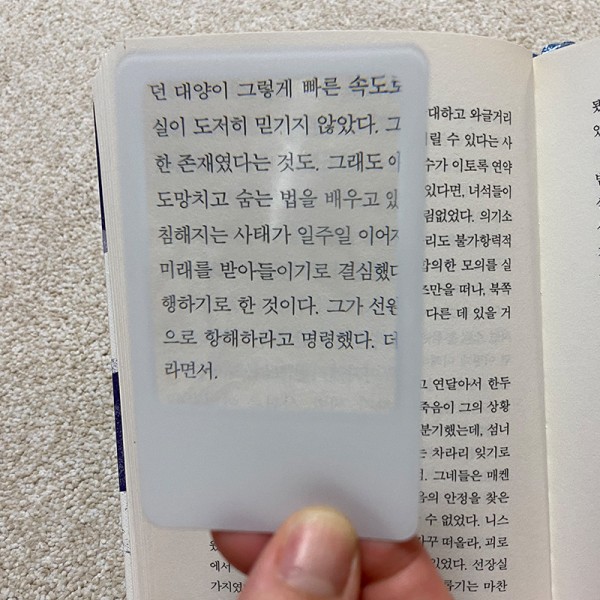 던 대양이 그렇게 빠른 속도로
실이 도저히 믿기지 않았다. 그
한 존재였다는 것도. 그래도 이
도망치고 숨는 법을 배우고 있
침해지는 사태가 일주일 이어지
미래를 받아들이기로 결심했다
행하기로 한 것이다. 그가 선원
으로 항해하라고 명령했다. 더
라면서.
대하고 와글거리
릴 수 있다는 사
수가 이토록 연약
있다면, 녀석들이
림없었다. 의기소
리도 불가항력적
합의한 모의를 실
조만을 떠나, 북쪽
다른 데 있을 거
고 연달아서 한두
죽음이 그의 상황
분기했는데, 섬너
는 차라리 잊기로
그네들은 매켄
음의 안정을 찾은
수 없었다. 니스
꾸 떠올라, 괴로
에서
있었다. 선장실
가지였
특기는 마찬